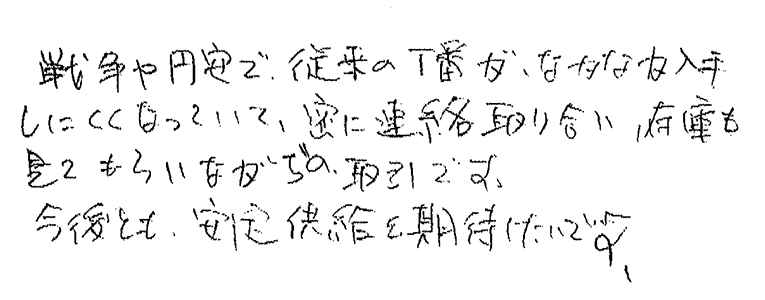 戦争や円安で、従来の丁番が、なかなか入手
しにくくなっていて、密に連絡取り合い、在庫も
見てもらいながらの取引です。
今後とも、安定供給を期待したいです。